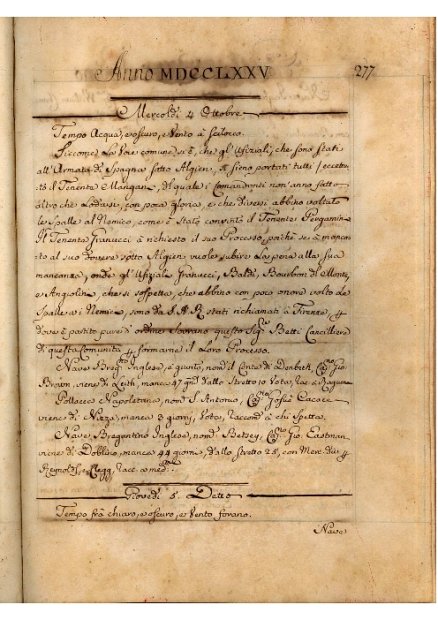 Anno MDCCLXXV
277
Mercoldì 4 Ottobre
Tempo Acqua, e oscuro, e Vento à Scilocco.
Siccome La Voce comune si è, che gl'Ufiziali, che sono stati
all'Armata di Spagna sotto Algieri, si sieno portati tutti (eccetto
il Tenente Mangani, di quale i Comandanti non anno fatto
altro che Lodarsi, con poca gloria, e che diversi abbino voltato
le Spalle al Nemico, come è stato convinto il Tenente
Il Tenente Franucci, à richiesto il suo Processo, poichè se à mancato
al suo dovere sotto Algieri vuole subire La pena alla sua
mancanza, onde gl'Ufiziali Franucci, Baldi, Bourbon del Monte,
e Angiolini, che si sospetta, che abbino con poco onore volto le
Spalle a i Nemici, sono da S.A.R. stati richiamati à Firenze, p
dove è partito pure d'ordine Sovrano questo Sigr Betti Cancilliere
di questa Comunità p formarne il Loro Processo.
Nave Inglese, è giunto, nom. il Conte di Capno Gio:
Brown, viene di Leith, manca 47 gni dallo Stretto 10 Vota,
Pollacca Napoletana, nom. S. Antonio, Capno Giosuè Cacace
viene di Nizza, manca 3 giorni, Vota, Raccom. à chi Spetta.
Nave Bregantino Inglese, nom. Betsey, Capno Gio: Eastman
viene di Dobblino, manca 44 giorni, dallo stretto 25, con Merc. div. p
Reynolds, e Clegg, Racc. a med.
Giovedì 5. Detto
Tempo frà chiaro, e oscuro, e Vento forano.
Nave